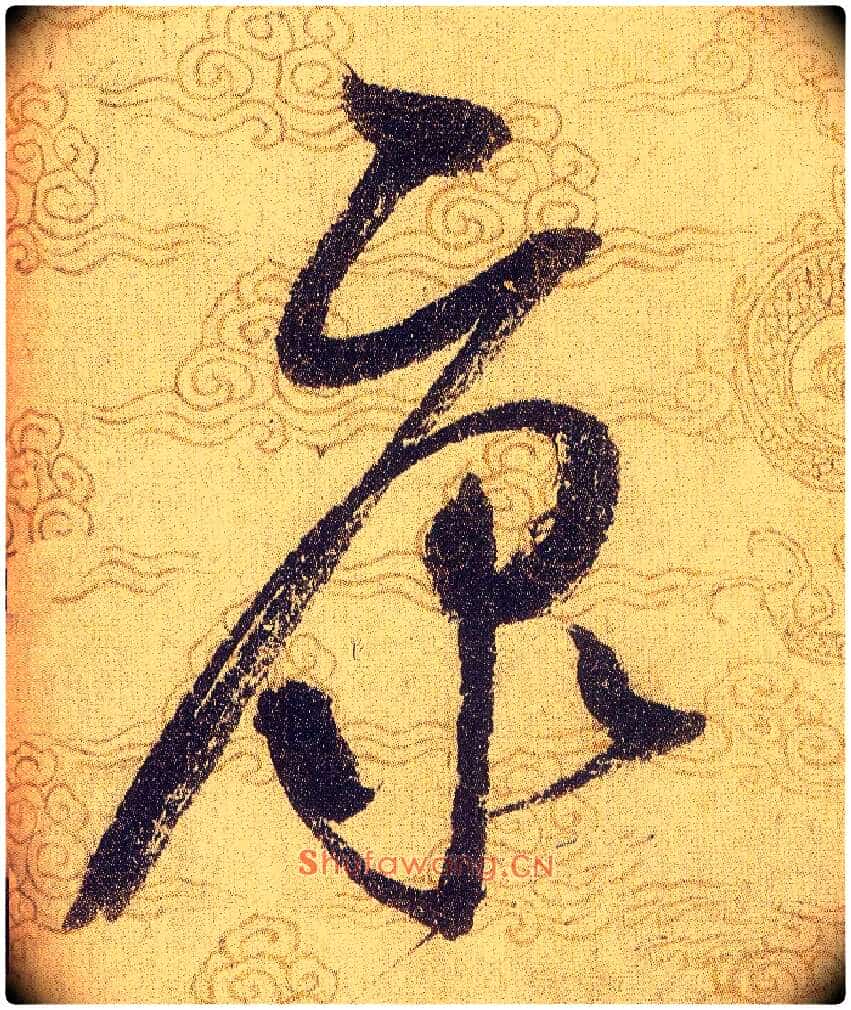 康
Shufawang.CN